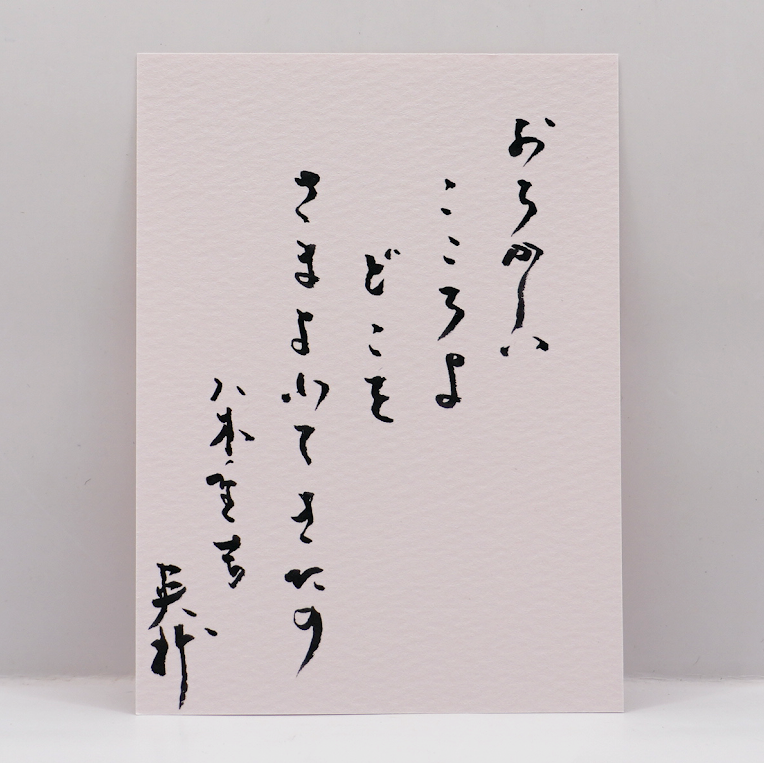 おろかしい
こころよ
どこを
さまよふてきたの
八木重吉